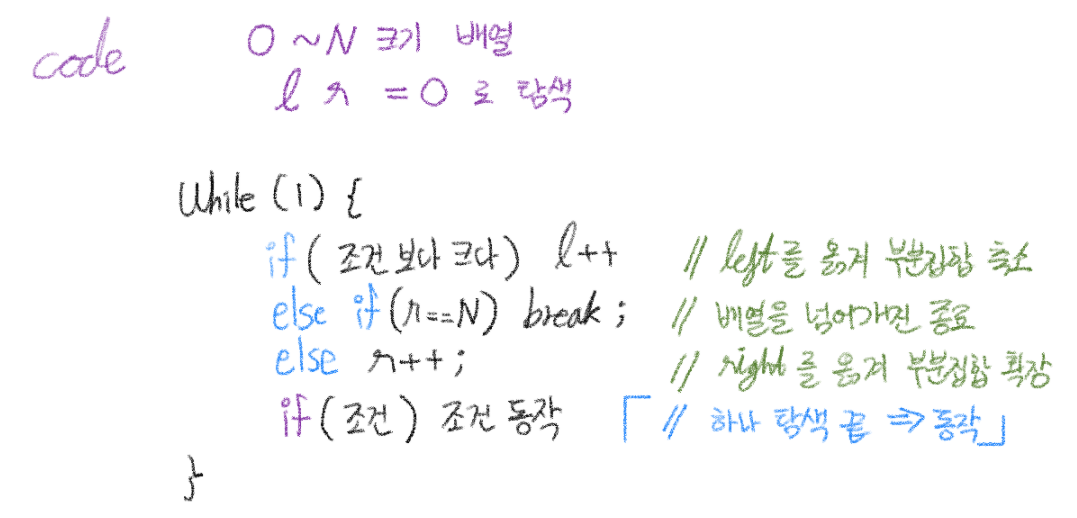 code 0 ~ N 크기 배열
l r = 0 로 탐색
While (1) {
if( 조건 보다 크다) l++ // left를 옮겨 부분집합 축소
else if(r==N) break; // 배열을 넘어가진 종료
else r++; // right를 옮겨 부분집합 확장
if(조건) 조건 동작 「// 하나 탐색 끝 => 동작」
}